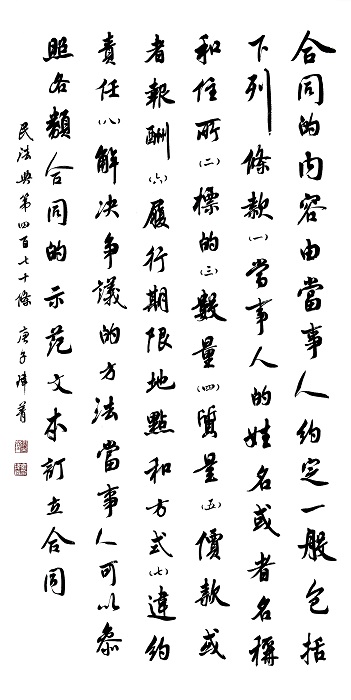 合同的内容由當事人約定一般包括
下列條款㈠當事人的姓名或者名稱
和住所㈡標的㈢數量㈣質量㈤價款或
者報酬㈥履行期限地點和方式㈦違約
責任㈧解决争議的方法當事人可以參
照各類合同的示范文本訂立合同
民法典第四百七十條 庚子